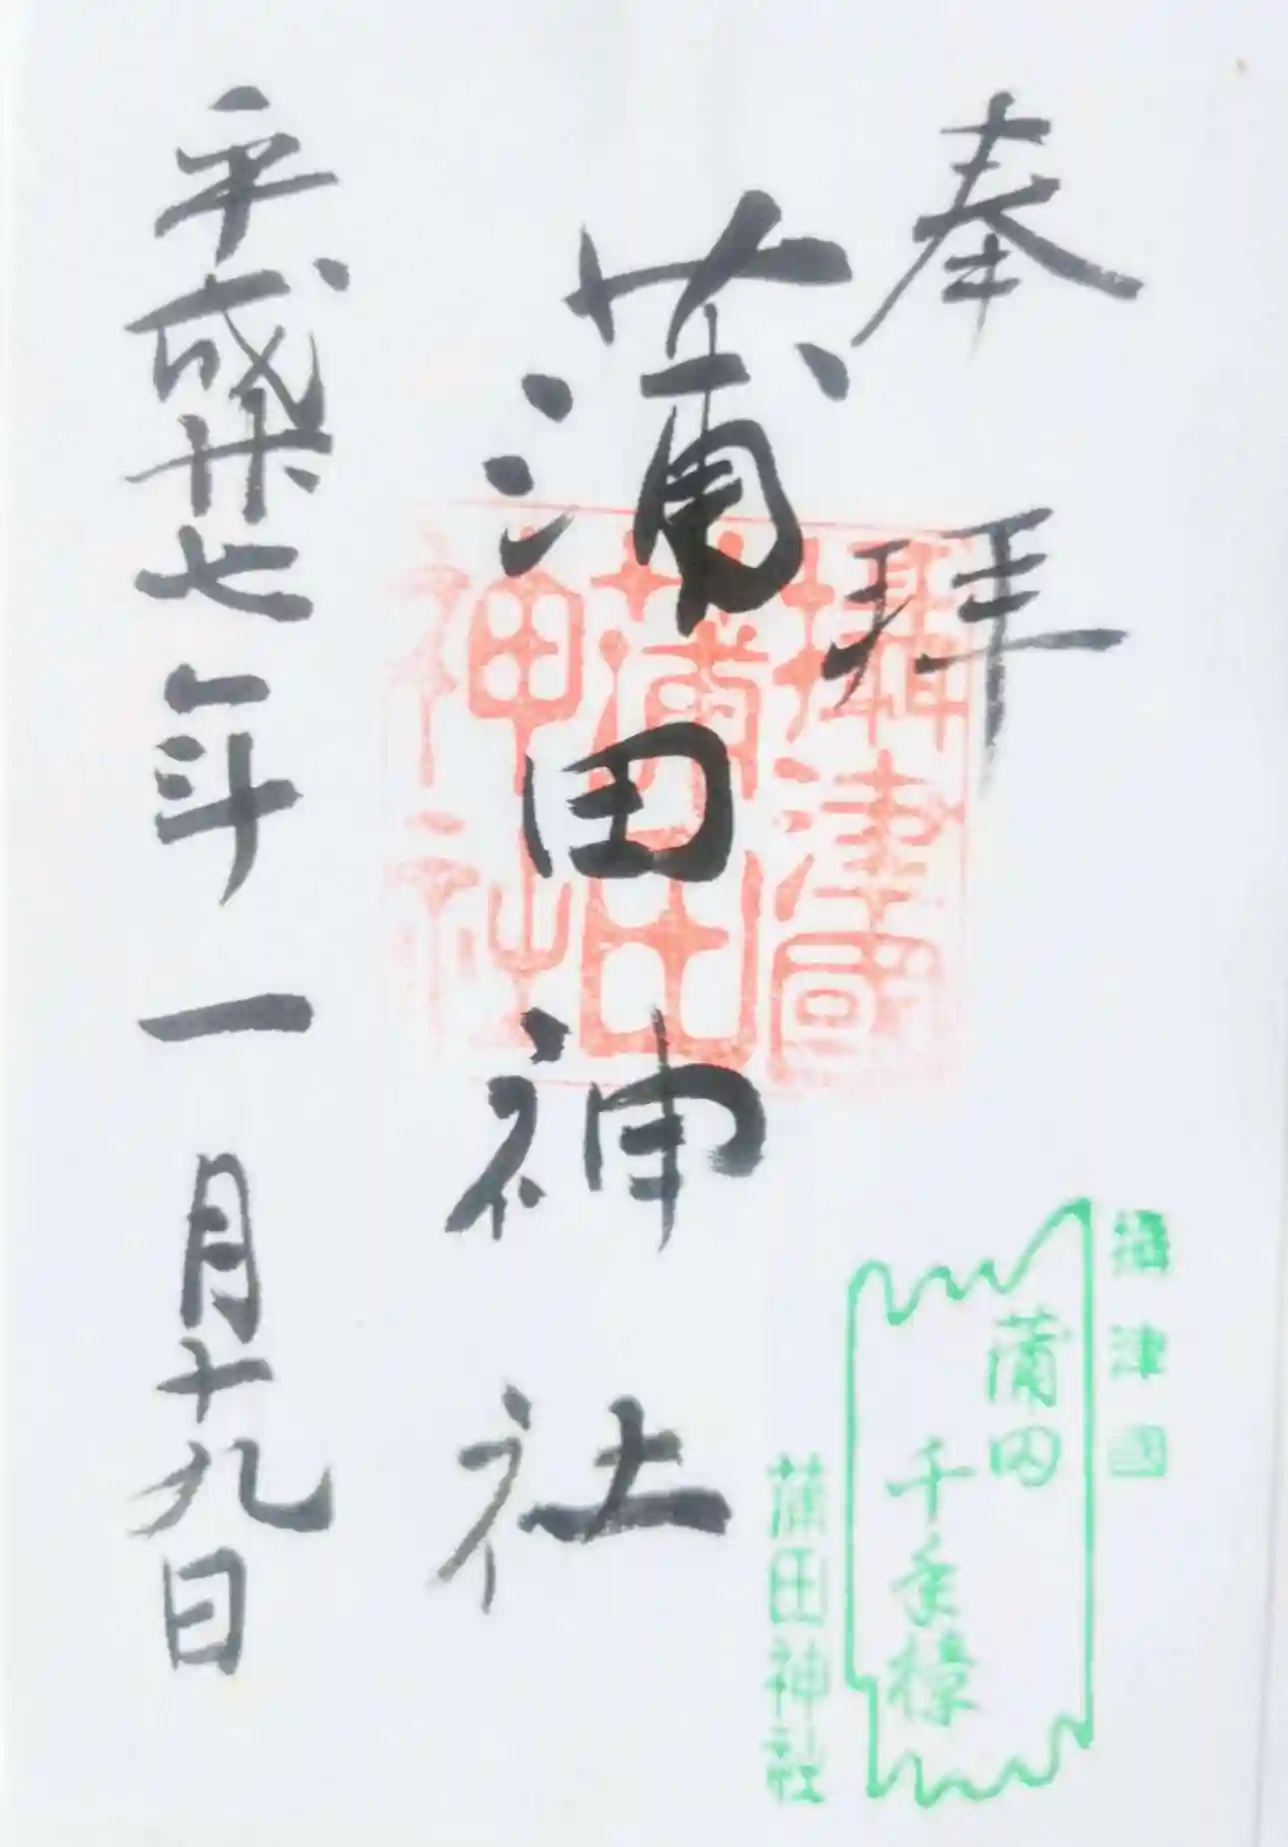 奉拝
蒲田神社
平成廿七年一月十九日
攝津國
蒲田
神社
攝津國
蒲田
千年樟
蒲田神社